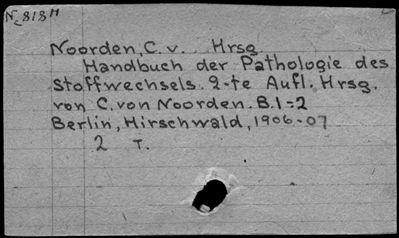 N_c 818^H
Noorden, C. v. Hrsg.
Handbuch der Pathologie des
Stoffwechsels. 2-te Aufl. Hrsg.
von C. von Noorden. B. 1=2
Berlin, Hirschwald, 1906-07
2 T.